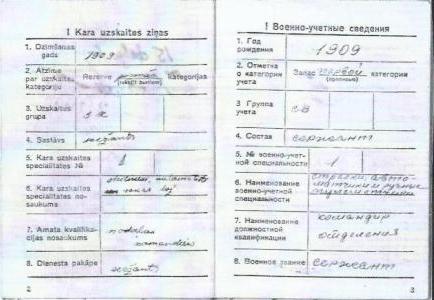 I Kara uzskaites ziņas
1. Dzimšanas gads 1909
2. Atzīme par uzskaites kategoriju Rezerve kategorijas
3. Uzskaites grupa
4. Sastāvs seržants
5. Kara uzskaites specialitātes № 1
6. Kara uzskaites specialitātes nosaukums
7. Amata kvalifikācijas nosaukums nodaļas komandieris
8. Dienesta pakāpe seržants
2
I Военно-учетные сведения
1. Год рождения 1909
2. Отметка о категории учета Запас первой категории
(прописью)
3 Группа учета
4. Состав сержант
5. № военно-учетной специальности 1
6. Наименование военно-учетной специальности стрелки, автоматчики и ручные пулеметчики
7. Наименование должностной квалификации командир отделения
8. Военное звание сержант
3